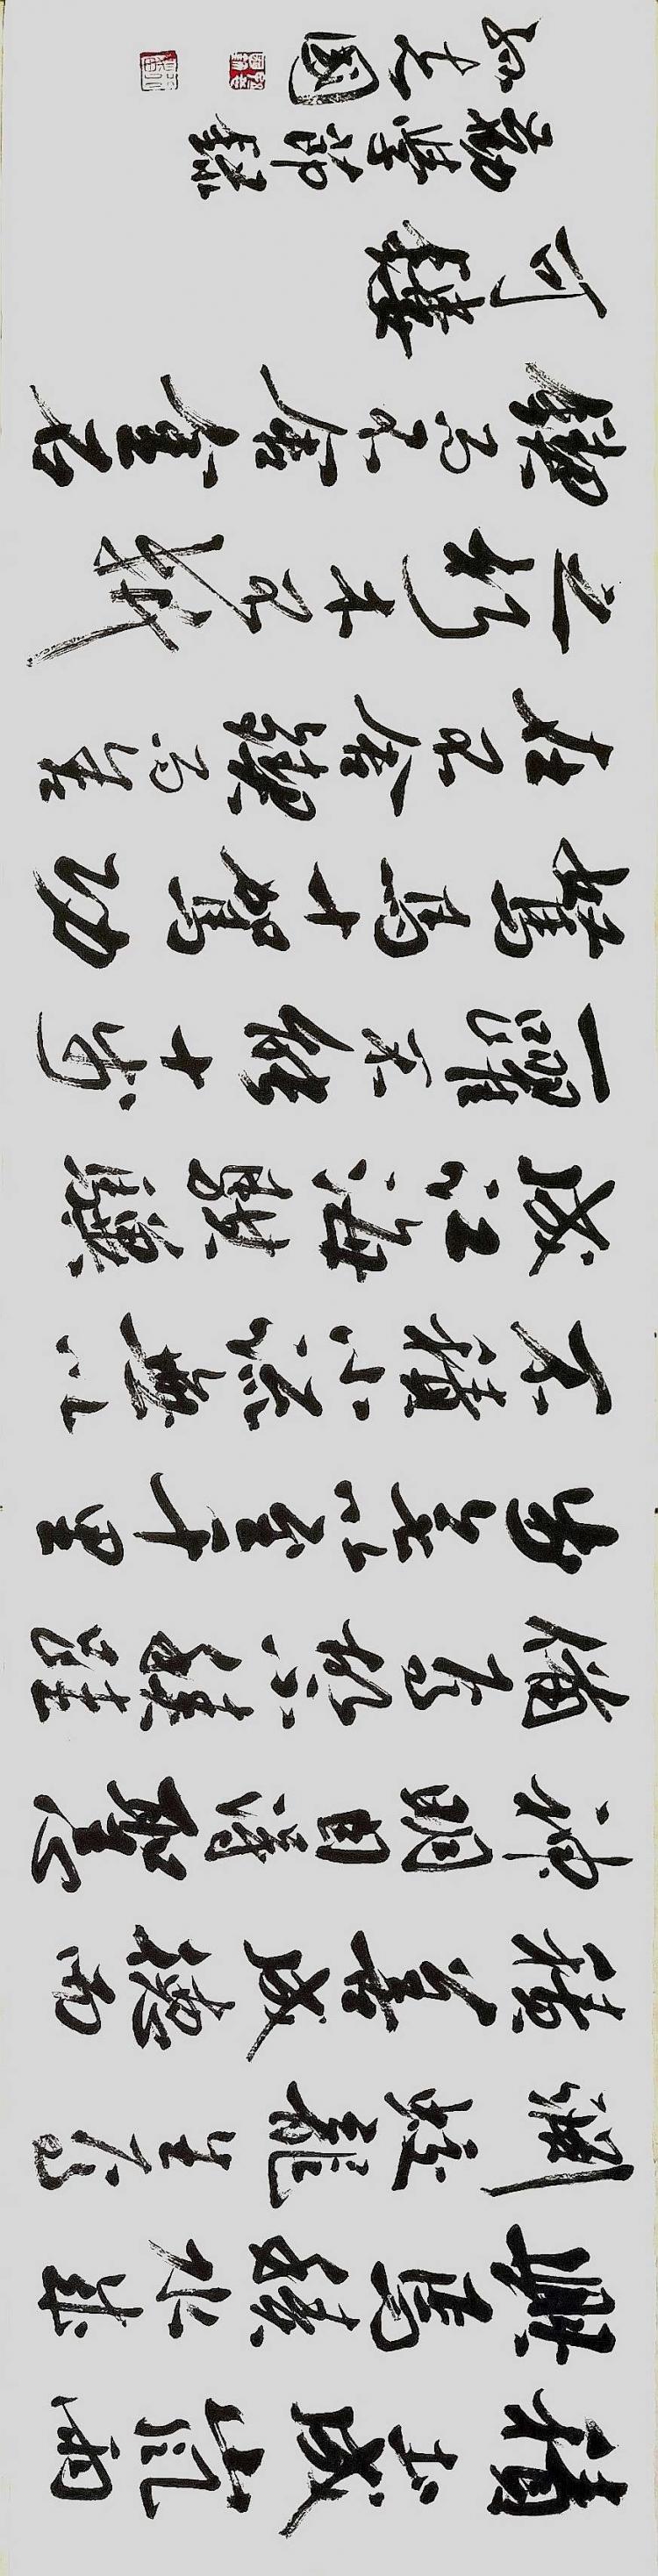 積土成山風雨
興焉積水成
淵蛟龍生焉
積善成德而
神明自得聖心
備焉故不積跬
步無以至千里
不積小流無以
成江海騏驥
一躍不能十步
駑馬十駕功
在不舍鍥而舍
之朽木不折
鍥而不舍金石
可鏤
勸學節錄